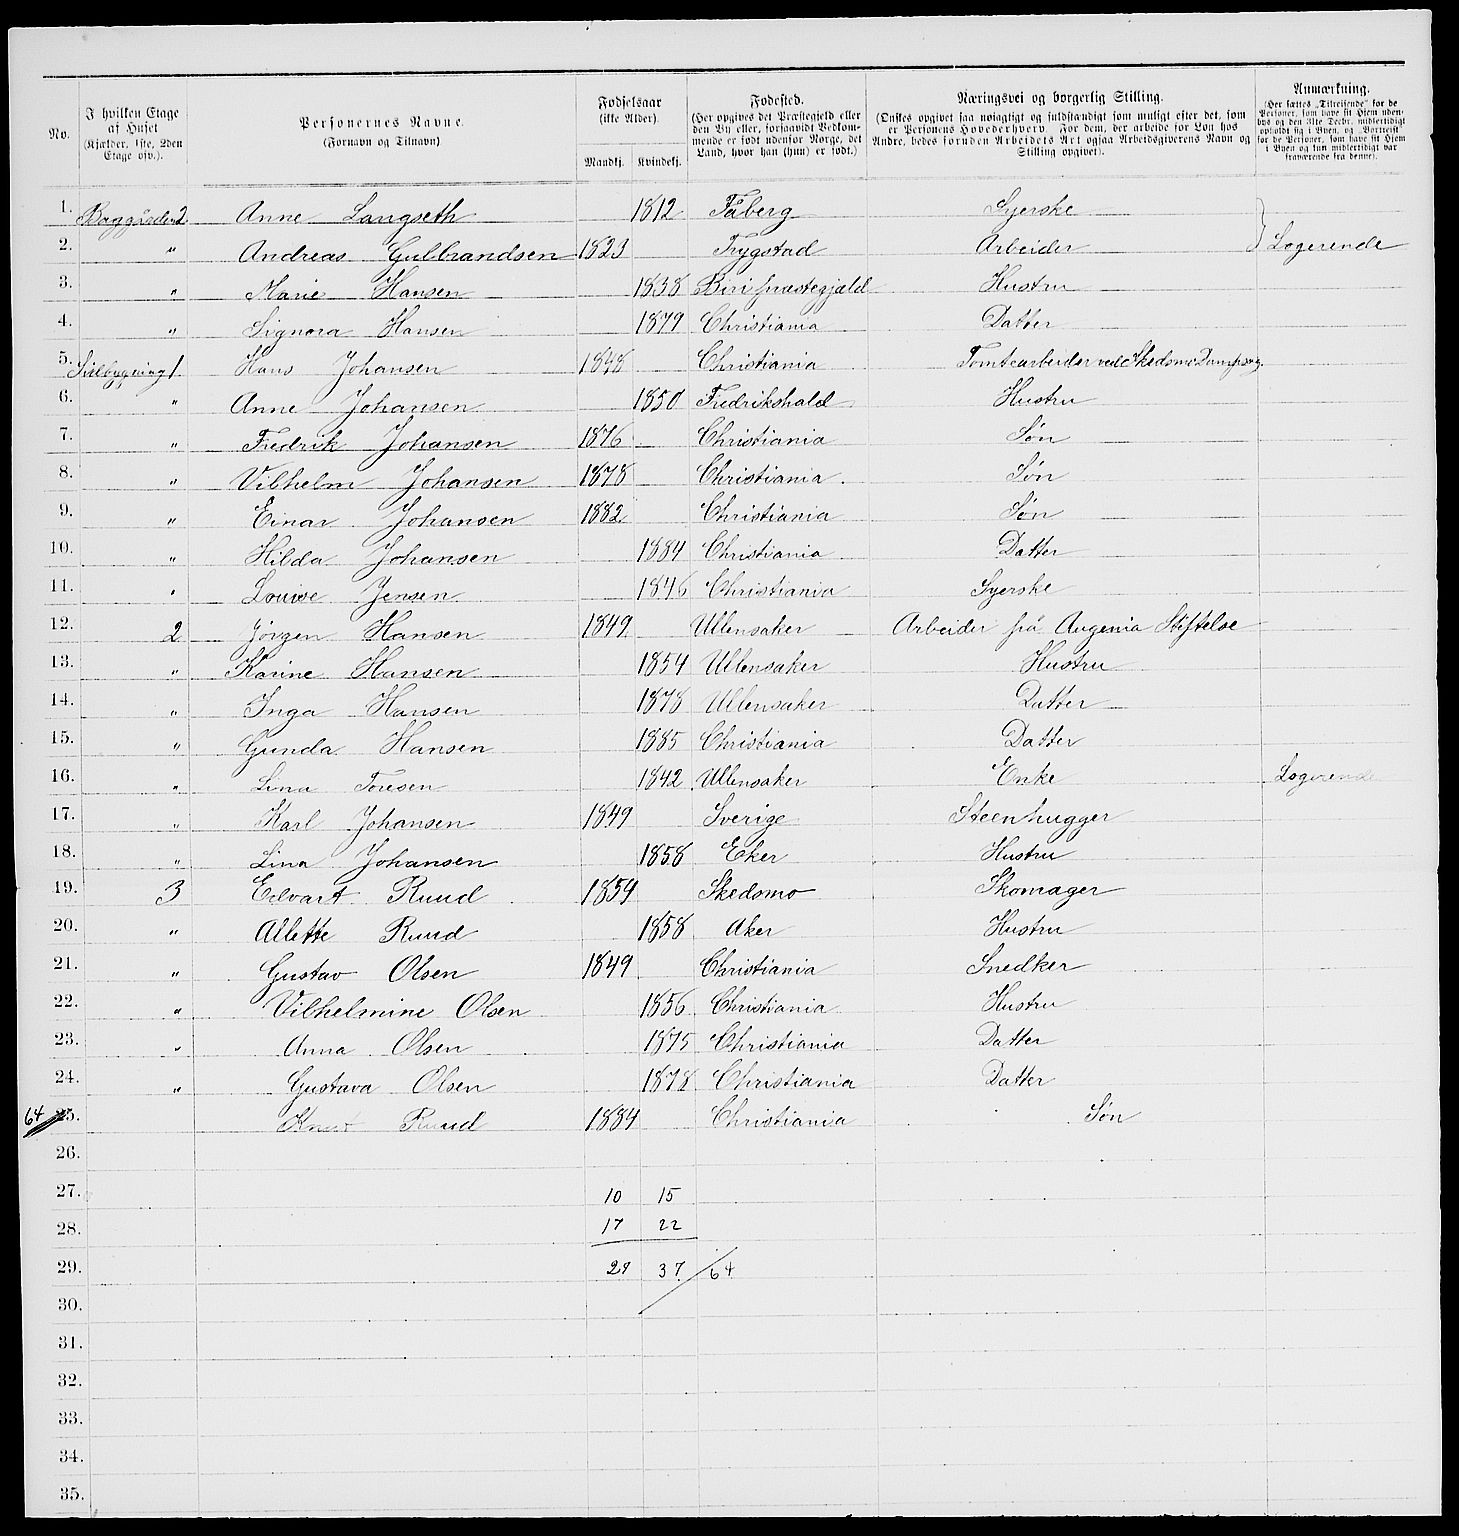 No. | I hvilken Etage af Huset (Kjælder, 1ste, 2den Etage osv.). | Personernes Navne. (Fornavn og Tilnavn) | Fødselsaar (ikke Alder). Mandkj. | Kvindekj. | Fødested. (Her opgives det Præstegjeld eller den By eller, forsaavidt Vedkommende er født udenfor Norge, det Land, hvor han (hun) er født.) | Næringsvei og borgerlig Stilling. (Ønskes opgivet saa nøiagtigt og fuldstændigt som muligt efter det, som er Personens Hovederhverv. For dem, der arbeide for Løn hos Andre, bedes foruden Arbeidets Art ogsaa Arbeidsgiverens Navn og Stilling opgivet). | Anmærkning. (Her sættes „Tilreisende" for de Personer, som have sit Hjem udenbys og den 31te Decbr. midlertidigt opholdt sig i Byen, og „Bortreist" for de Personer, som have sit Hjem i Byen og kun midlertidigt var fraværende fra denne).
1. Baggården 2 Anne Langseth 1812 Fåberg Syerske
2. " Andreas Gulbrandsen 1823 Trygstad Arbeider } Logerende
3. " Marie Hansen 1838 Biri præstegjæld Hustru
4. " Signora Hansen 1879 Christiania Datter
5. Sidbygning 1 Hans Johansen 1848 Christiania Tomtearbeider ved Skedsmo Dampsag.
6. " Anne Johansen 1850 Fredrikshald Hustru
7. " Fredrik Johansen 1876 Christiania Søn
8. " Vilhelm Johansen 1878 Christiania Søn
9. " Einar Johansen 1882 Christiania Søn
10. " Hilda Johansen 1884 Christiania Datter
11. " Louise Jensen 1846 Christiania Syerske
12. 2 Jörgen Hansen 1849 Ullensaker Arbeider på Augenia Stiftelse
13. " Karine Hansen 1854 Ullensaker Hustru
14. " Inga Hansen 1878 Ullensaker Datter
15. " Gunda Hansen 1885 Christiania Datter
16. " Lina Toresen 1842 Ullensaker Enke Logerende
17. " Karl Johansen 1849 Sverige Steenhugger
18. " Lina Johansen 1858 Eker Hustru
19. 3 Edvart Ruud 1854 Skedsmo Skomager
20. " Allette Ruud 1858 Aker Hustru
21. " Gustav Olsen 1849 Christiania Snedker
22. " Vilhelmine Olsen 1856 Christiania Hustru
23. " Anna Olsen 1875 Christiania Datter
24. " Gustava Olsen 1878 Christiania Datter
64 25. Knut Ruud 1884 Christiania Søn
26.
27. 10 15
28. 17 22
29. 27 37 / 64
30.
31.
32.
33.
34.
35.